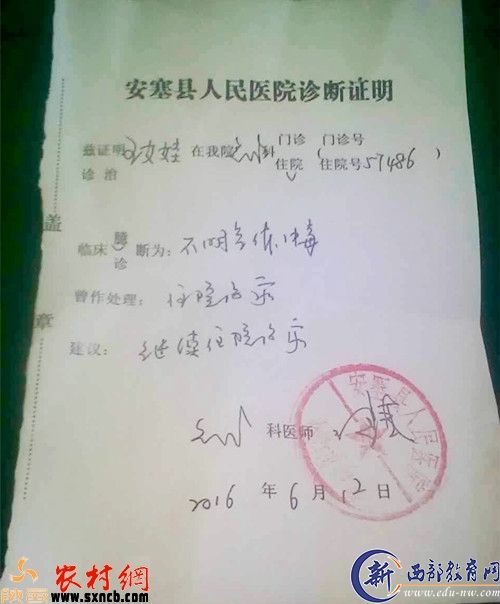 安塞县人民医院诊断证明
兹证明 在我院 科 门诊 住院 ( 门诊号 住院号 57486 )
诊治
盖
临床 诊 断为: 不明气体中毒
曾作处理: 住院治疗
章
建议: 继续住院治疗
科医师
安塞县人民医院
2016 年 6 月 12 日
农村網
www.sxncb.com
新 西部教育网
www.edu-nw.com